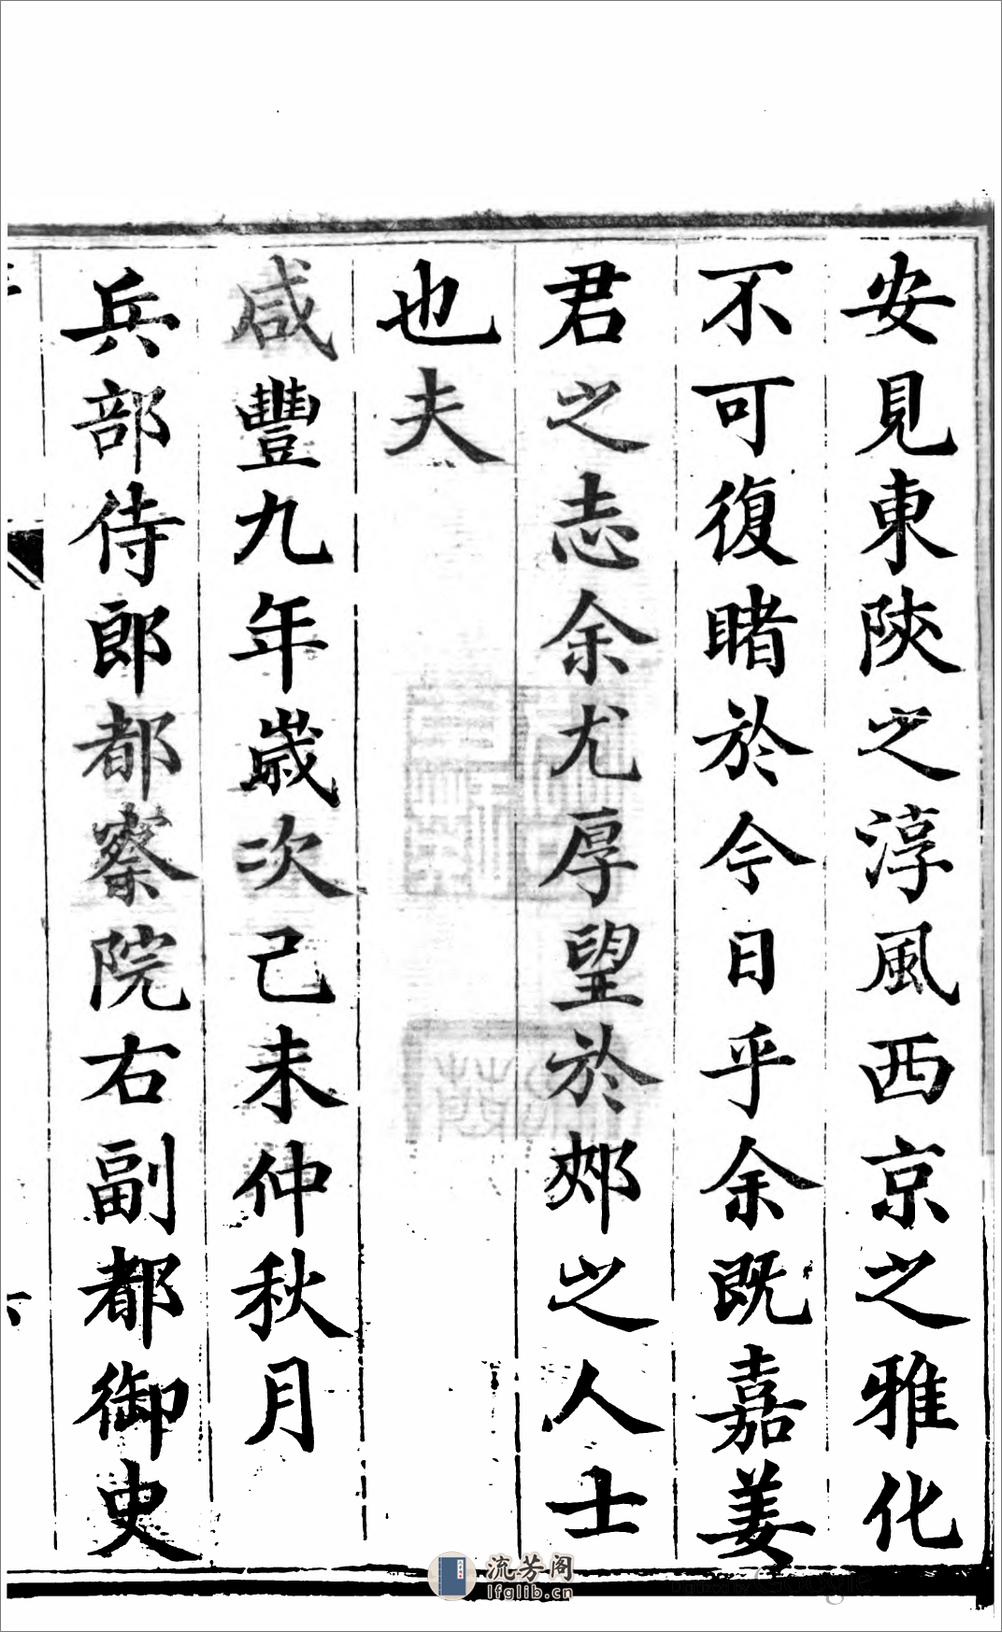 安見東陝之淳風西京之雅化
不可復睹於今日乎余既嘉姜
君之志余尤厚望於郟之人士
也夫
咸豐九年歲次己未仲秋月
兵部侍郎都察院右副都御史
流芳阁
lfglib.cn